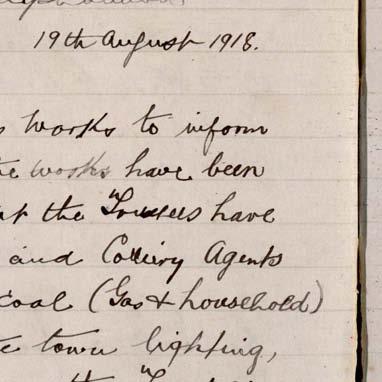 19th August 1918.
works to inform
works have been
the Trustees have
and Colliery Agents
coal (Gas & household)
town lighting,